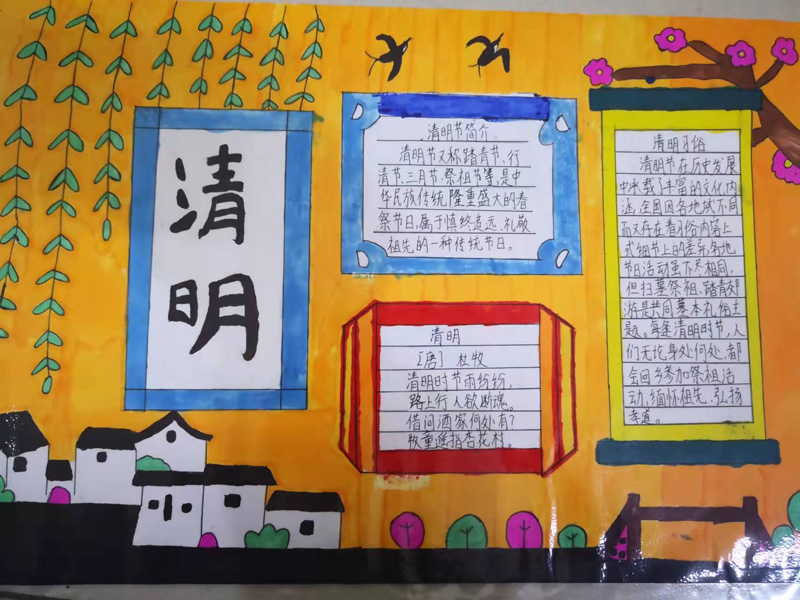 清
明
清明节简介
清明节又称踏青节、行
清节、三月节、祭祖节等,是中
华民族传统隆重盛大的春
祭节日,属于慎终追远、礼敬
祖先的一种传统节日。
清明
〔唐〕 杜牧
清明时节雨纷纷,
路上行人欲断魂。
借问酒家何处有?
牧童遥指杏花村。
清明习俗
清明节在历史发展
中承载了丰富的文化内
涵,全国因各地域不同
而又存在着习俗内落上
或细节上的差异,各地
节日活动虽不尽相同,
但扫墓祭祖、踏青郊
游是共同基本礼俗主
题。每逢清明时节,人
们无论身处何处,都
会回乡参加祭祖活
动,缅怀祖先、弘扬
孝道。